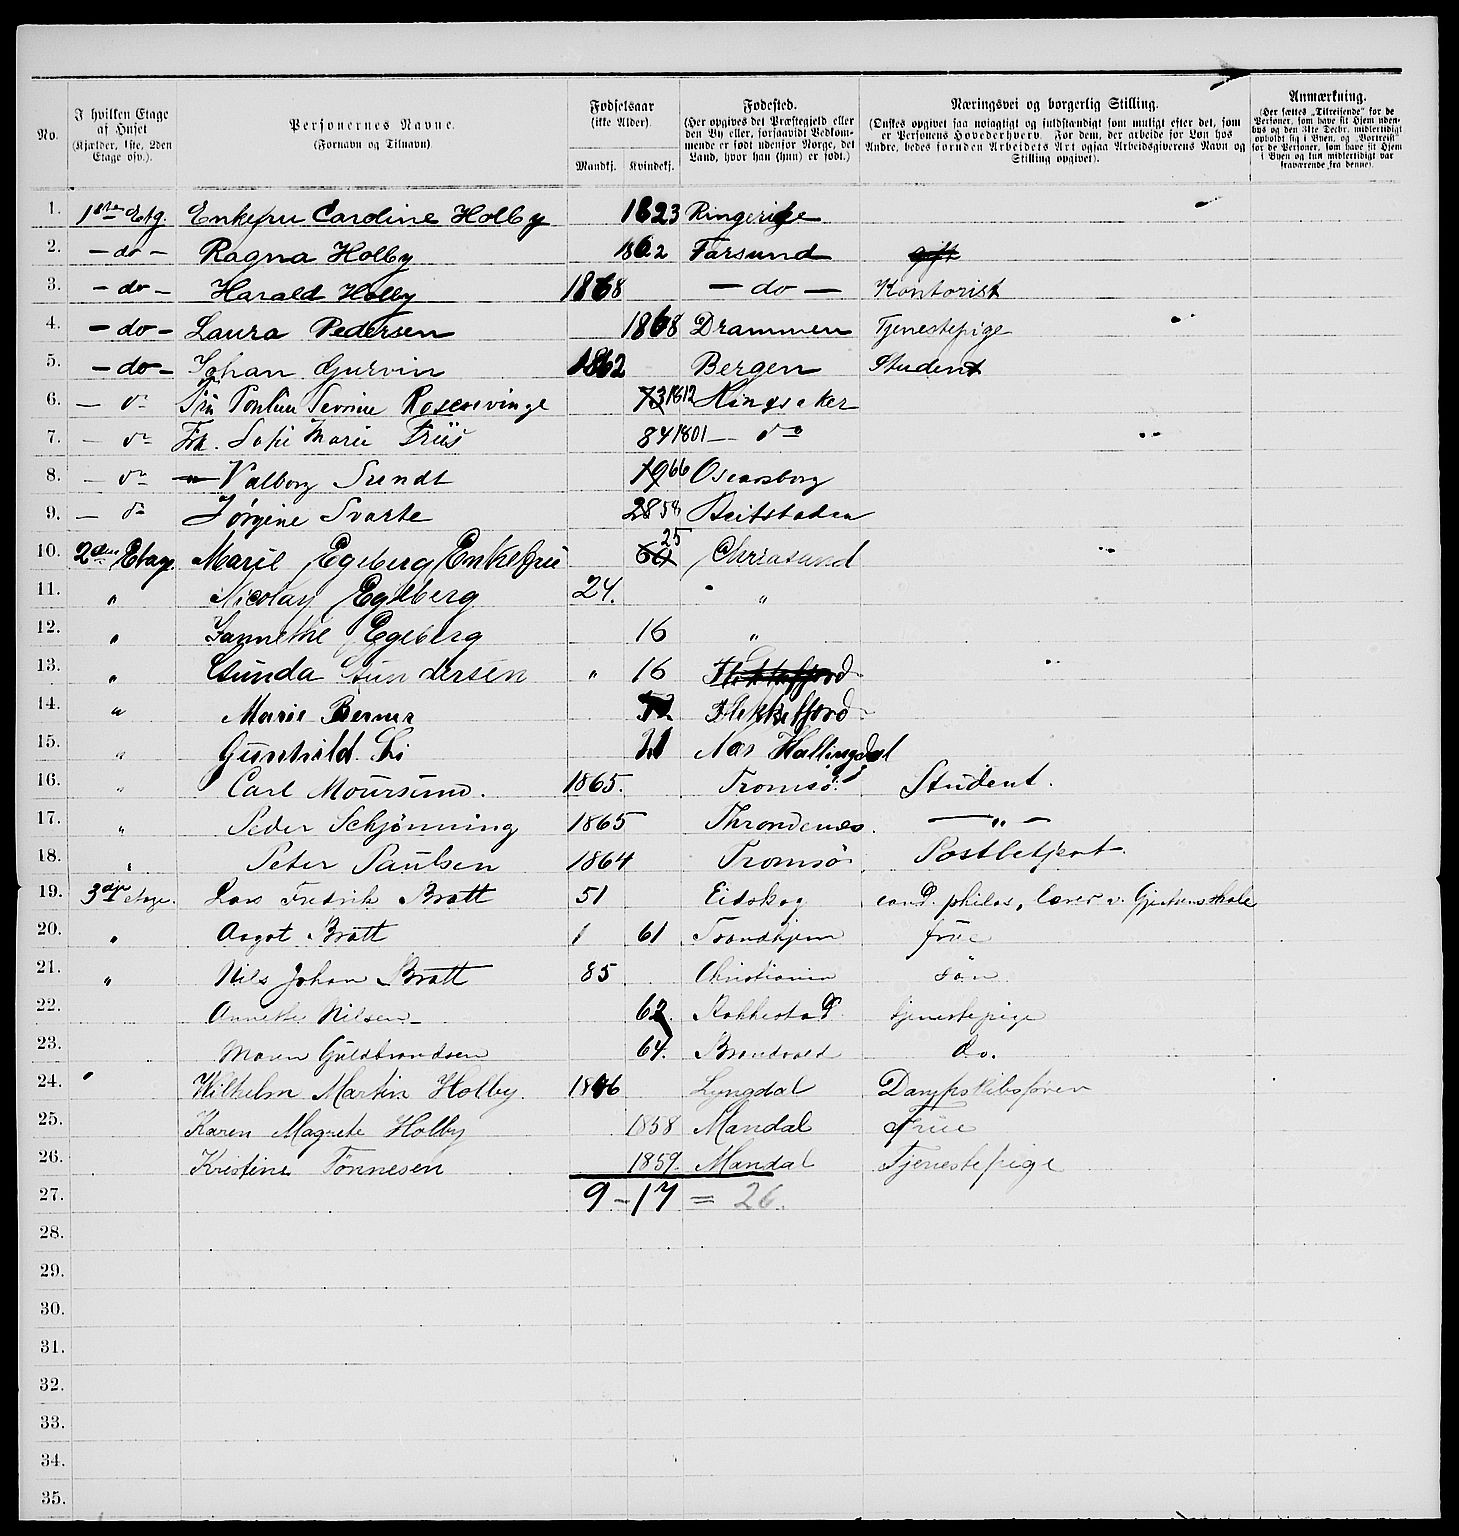 No. | I hvilken Etage af Huset (Kjælder, 1ste, 2den Etage osv.). | Personernes Navne. (Fornavn og Tilnavn) | Fødselsaar (ikke Alder). Mandkj. Kvindekj. | Fødested. (Her opgives det Præstegjeld eller den By eller, forsaavidt Vedkommende er født udenfor Norge, det Land, hvor han (hun) er født.) | Næringsvei og borgerlig Stilling. (Ønskes opgivet saa nøiagtigt og fuldstændigt som muligt efter det, som er Personens Hovederhverv. For dem, der arbeide for Løn hos Andre, bedes foruden Arbeidets Art ogsaa Arbeidsgiverens Navn og Stilling opgivet). | Anmærkning. (Her sættes „Tilreisende“ for de Personer, som have sit Hjem udenbys og den 31te Decbr. midlertidigt opholdt sig i Byen, og „Bortreist“ for de Personer, som have sit Hjem i Byen og kun midlertidigt var fraværende fra denne).
1. 1ste Etg. Enkefru Caroline Holby 1823 Ringerige
2. — do — Ragna Holby 1862 Farsund gift
3. — do — Harald Holby 1868 — do — Kontorist
4. — do — Laura Pedersen 1868 Drammen Tjenestepige
5. — do — Johan Gurvin 1862 Bergen Student
6. — do Rosenvinge 73 1812 Ringsaker
7. — do Frk. Sofie Marie Friis 84 1801 — do
8. — do — Valborg Sundt 19 66 Oscarsborg
9. — do Jørgine Svarte 28 Beitstaden
10. 2den Etage Marie Egeberg Enkefrue 60 25 Christsand
11. " Nicolay Egeberg 24. "
12. " Fannethe Egeberg 16 "
13. " Gunda Gundersen " 16 Flekkefjord
14. " Marie Berner Flekkefjord
15. " Gunhild Li Næs Hallingdal
16. " Carl Moursund. 1865. Tromsø. Student.
17. " Peder Schjønning 1865 Throndenes. — " —
18. " Peter Paulsen 1864 Tromsø Postbetjent.
19. 3dje etage. Lars Fredrik Bratt 51 Eidskog cand. philos, lærer v. Gjertsens skole
20. " Aagot Bratt 61 Trondhjem frue
21. " Nils Johan Bratt 85 Christiania søn
22. Annette Nilsen 62 Rakkestad tjenestepige
23. Maren Guldbrandsen 64. Brandvold do.
24. " Wilhelm Martin Holby. 1846 Lyngdal Dampskibsfører
25. Karen Magrete Holby 1858 Mandal Frue
26. Kristine Tønnesen 1859. Mandal Tjenestepige
27. 9 – 17 = 26.
28.
29.
30.
31.
32.
33.
34.
35.